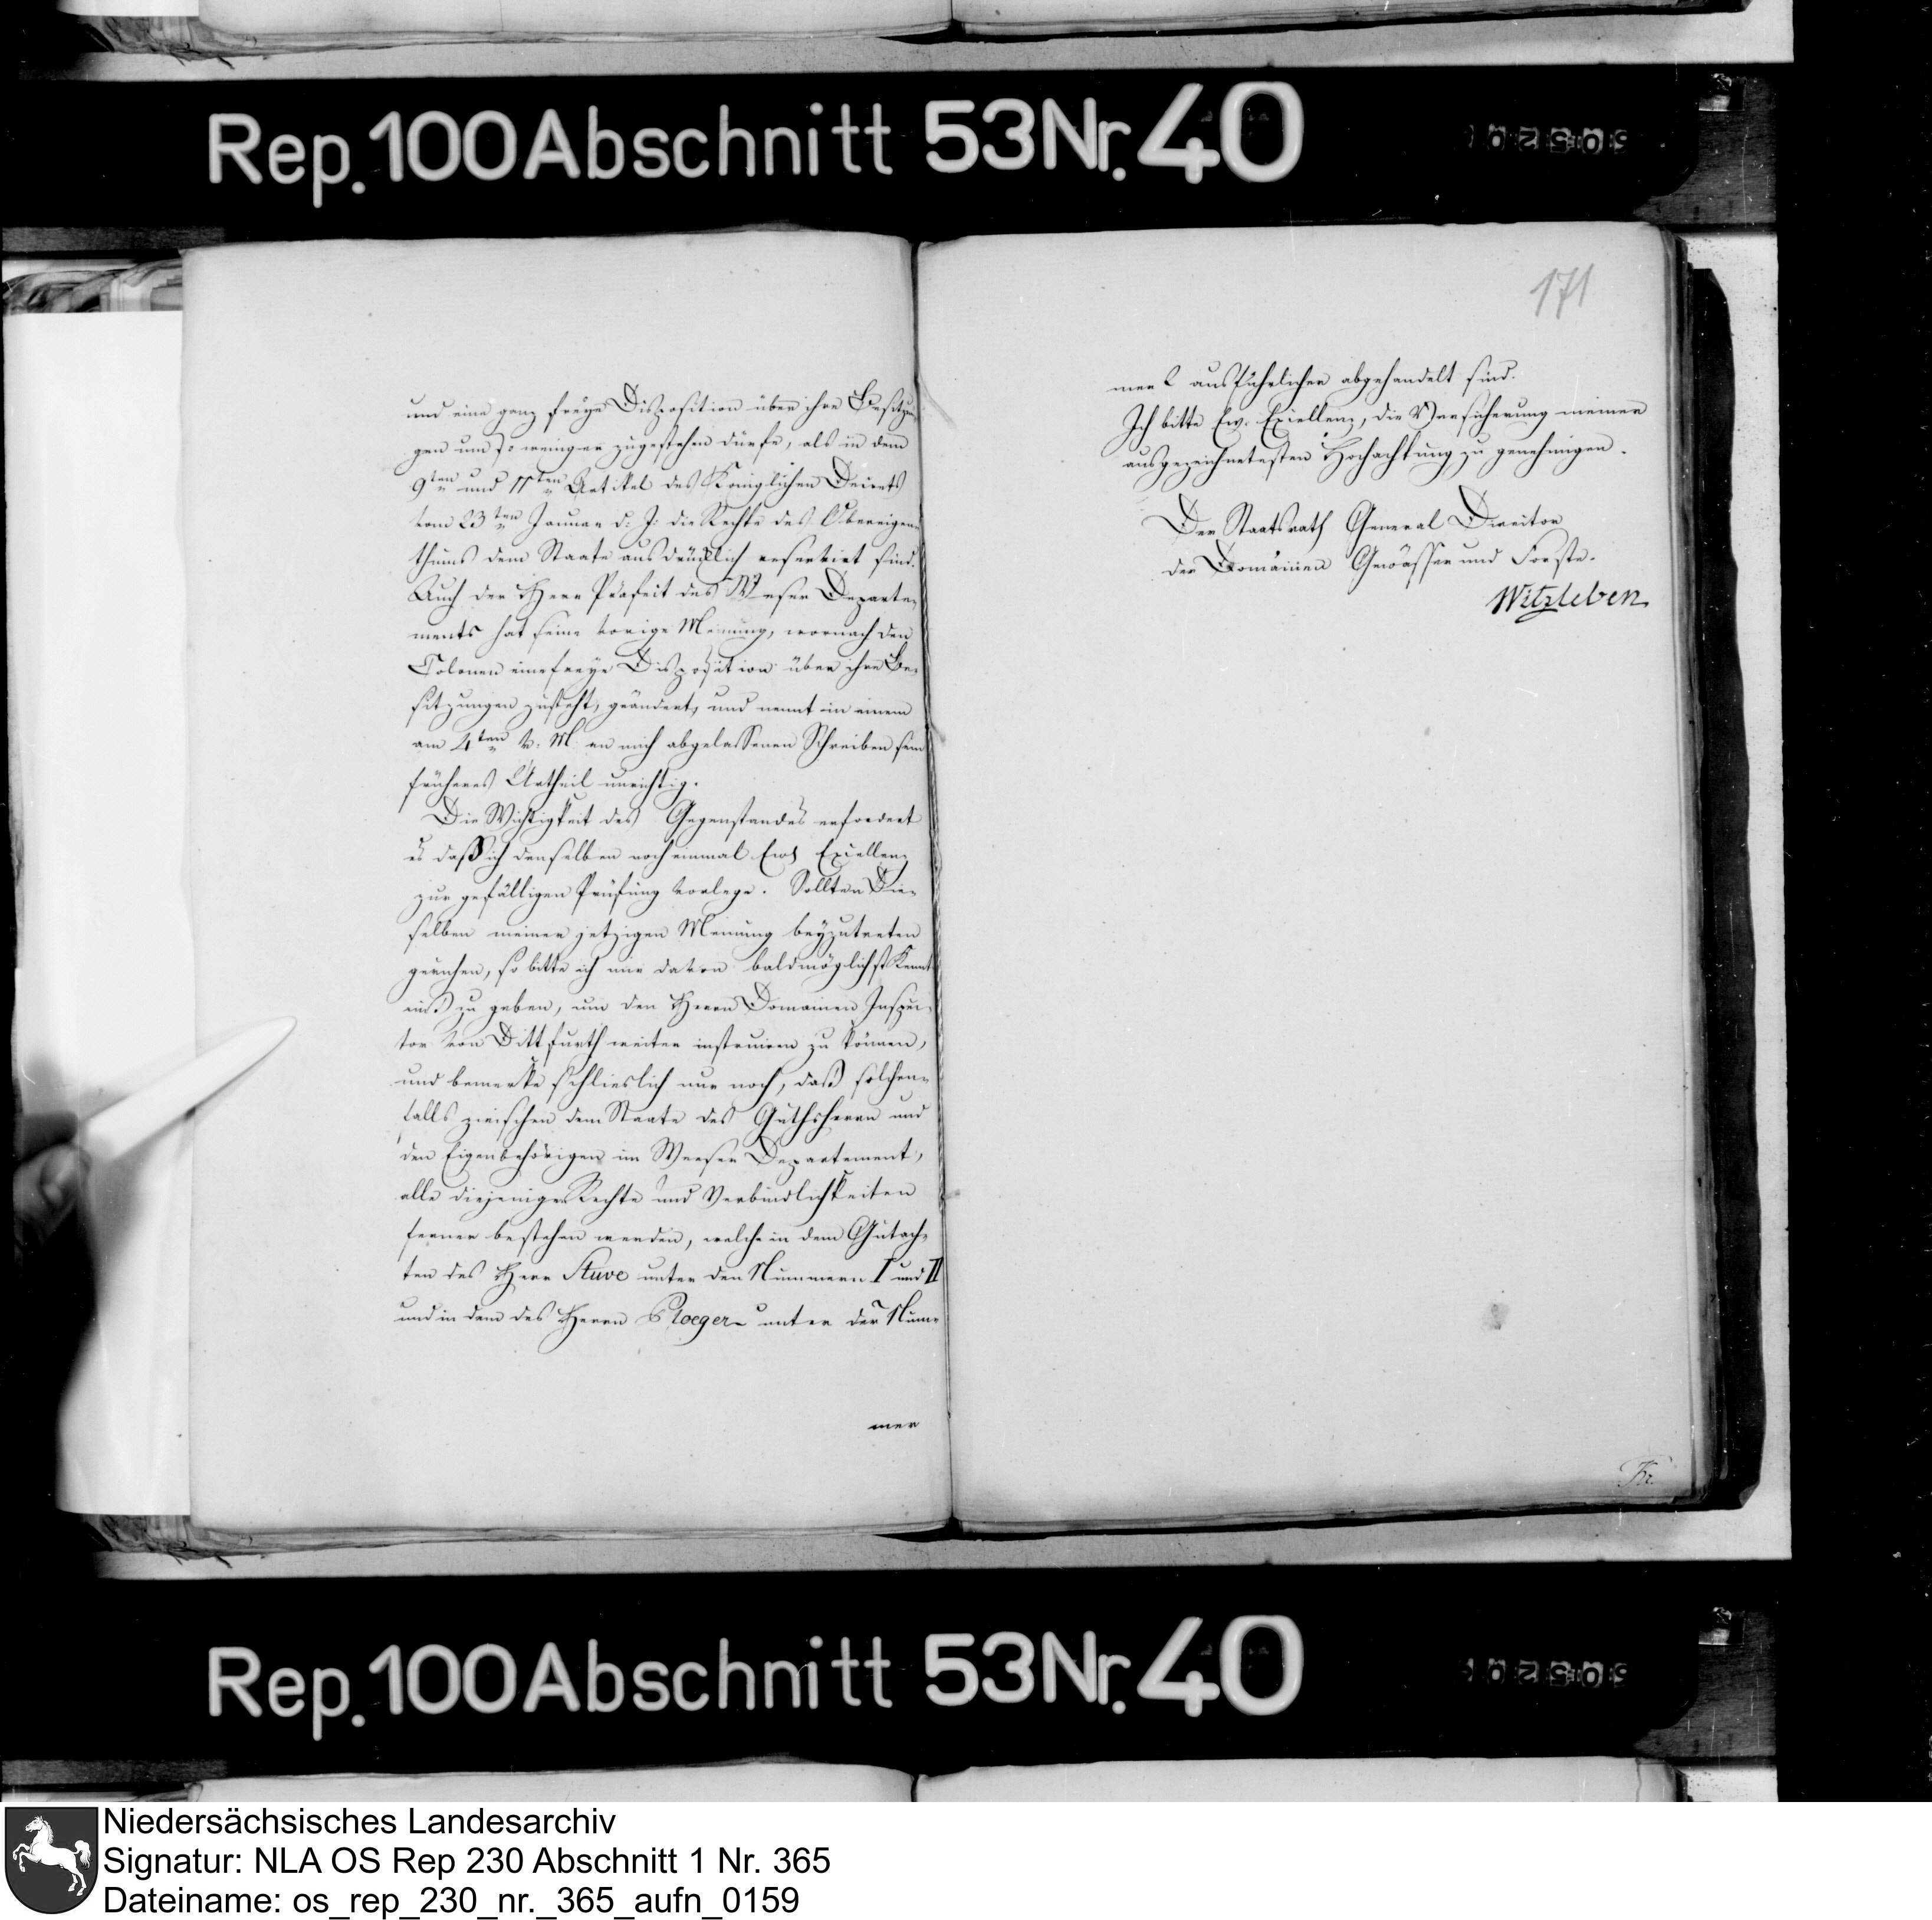 Rep. 100 Abschnitt 53 Nr. 40
und eine ganz freye Disposition über ihre Besitzun-
gen um so weniger zugestehen dürfe, als in dem
9ten und 11ten Artikel des Königlichen Decrets
vom 23ten Januar d. J. die Rechte des Obereigen-
thums dem Staate ausdrücklich reservirt sind.
Auch der Herr Präfect des Weser Departe-
ments hat seine vorige Meinung, wornach den
Colonen eine freye Disposition über ihre Be-
sitzungen zusteht, geändert, und nennt in einem
am 4ten v. M. an mich abgelassenen Schreiben sein
früheres Urtheil unrichtig.
Die Wichtigkeit des Gegenstandes erfordert
es daß ich denselben noch einmal Ew. Excellenz
zur gefälligen Prüfung vorlege. Sollten Die-
selben meiner jetzigen Meinung beyzutreten
geruhen, so bitte ich mir davon baldmöglichst Kennt-
niß zu geben, um den Herrn Domainen Inspec-
tor von Dittfurth weiter instruiren zu können,
und bemerke schlieslich nur noch, daß solchen-
falls zwischen dem Staate des Guthsherrn und
den Eigenbehörigen im Weser Departement,
alle diejenigen Rechte und Verbindlichkeiten
ferner bestehen werden, welche in dem Gutach-
ten des Herr Stuve unter den Nummern I und II
und in dem des Herrn unter der Num-
mer
171
mer 2 ausführlicher abgehandelt sind.
Ich bitte Ew. Excellenz, die Versicherung meiner
ausgezeichnetesten Hochachtung zu genehmigen.
Der Staatsrath General Director
der Domainen Gewässer und Forste.
Witzleben
Rep. 100 Abschnitt 53 Nr. 40
Niedersächsisches Landesarchiv
Signatur: NLA OS Rep 230 Abschnitt 1 Nr. 365
Dateiname: os_rep_230_nr._365_aufn_0159